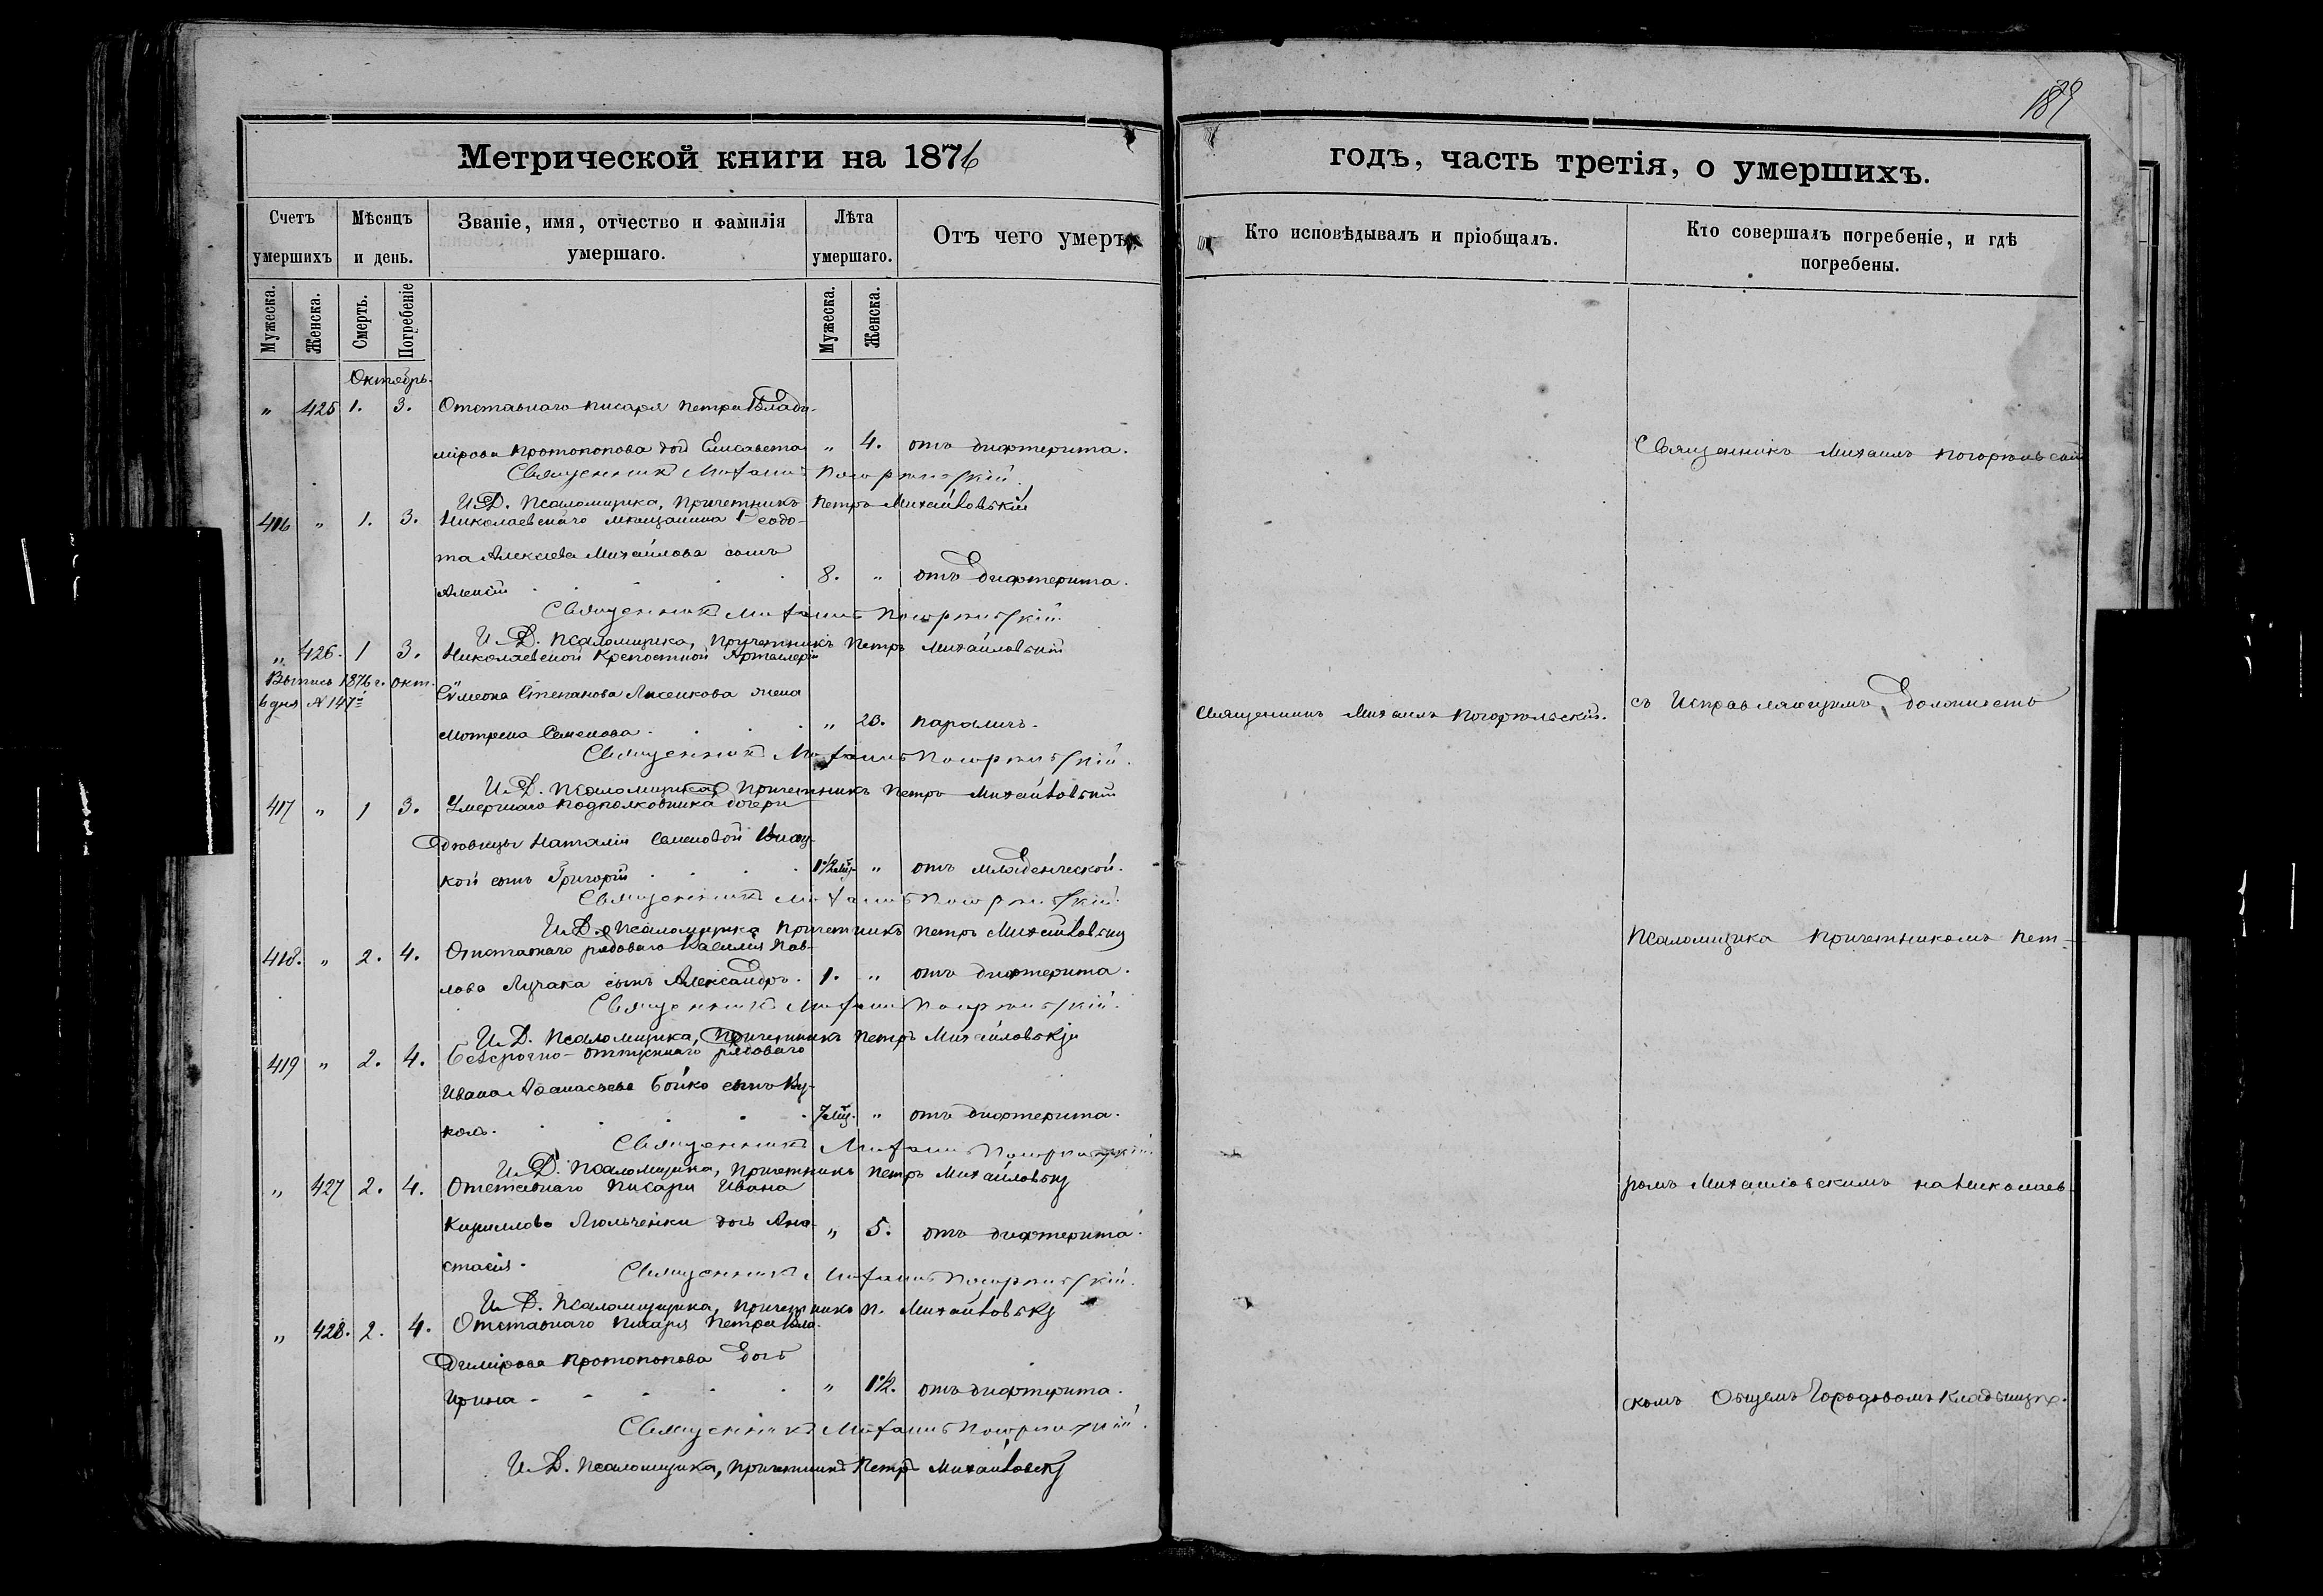 189
Метрической книги на 1876
годъ, часть третія, о умершихъ.
Счетъ умершихъ
Мѣсяцъ и день.
Званіе, имя, отчество и фамилія умершаго.
Лѣта умершаго.
Отъ чего умеръ.
Кто исповѣдывалъ и пріобщалъ.
Кто совершалъ погребеніе, и гдѣ погребены.
Мужеска. Женска. Смерть. Погребеніе Мужеска. Женска.
Октябрь.
" 425 1. 3. Отставнаго писаря Петра Влади-
мірова Протопопова дочь Елисавета " 4. отъ дифтерита.
Священникъ Михаилъ Погорѣльскій.
И. Д. Псаломщика, Причетникъ Петръ Михайловскій
416 " 1. 3. Николаевскаго мѣщанина Ѳеодо-
та Алексѣева Михайлова сынъ
Алексій 8. " отъ дифтерита.
Священникъ Михаилъ Погорѣльскій.
И. Д. Псаломщика, Причетникъ Петръ Михайловскій
" 426. 1 3. Николаевской Крепостной Артиллеріи
Выпись 1876 г. окт.
6 дня № 147й
Сѵмеона Степанова Лисенкова жена
Мотрена Семенова " 23. параличъ.
Священникъ Михаилъ Погорѣльскій.
И. Д. Псаломщика, Причетникъ Петръ Михайловскій
417 " 1 3. Умершаго подполковника дочери
дѣвицы Наталіи Семеновой
кой сынъ Григорій 1½ мѣс. " отъ младенческой.
Священникъ Михаилъ Погорѣльскій.
И. Д. Псаломщика Причетникъ Петръ Михайловскій
418. " 2. 4. Отставнаго рядоваго Василія Пав-
лова Лучака сынъ Александръ. 1. " отъ дифтерита.
Священникъ Михаилъ Погорѣльскій.
И. Д. Псаломщика, Причетникъ Петръ Михайловскій
419 " 2. 4. Безсрочно-отпускнаго рядоваго
Ивана Аѳанасьева Бойко сынъ
7 мѣс. " отъ дифтерита.
Священникъ Михаилъ Погорѣльскій.
И. Д. Псаломщика, Причетникъ Петръ Михайловскій
" 427 2. 4. Отставнаго писаря Ивана
Кириллова Люльченки дочь Ана-
стасія. " 5. отъ дифтерита.
Священникъ Михаилъ Погорѣльскій.
И. Д. Псаломщика, Причетникъ П. Михайловскій
" 428. 2. 4. Отставнаго писаря Петра Вла-
димірова Протопопова дочь
Ирина " 1½. отъ дифтерита.
Священникъ Михаилъ Погорѣльскій.
И. Д. Псаломщика, Причетникъ Петръ Михайловскій
Священникъ Михаилъ Погорѣльскій.
Священникъ Михаилъ Погорѣльскій
съ Исправляющимъ должность
Псаломщика Причетникомъ Пет-
ромъ Михайловскимъ на Николаев-
скомъ Общемъ Городовомъ Кладбищѣ.